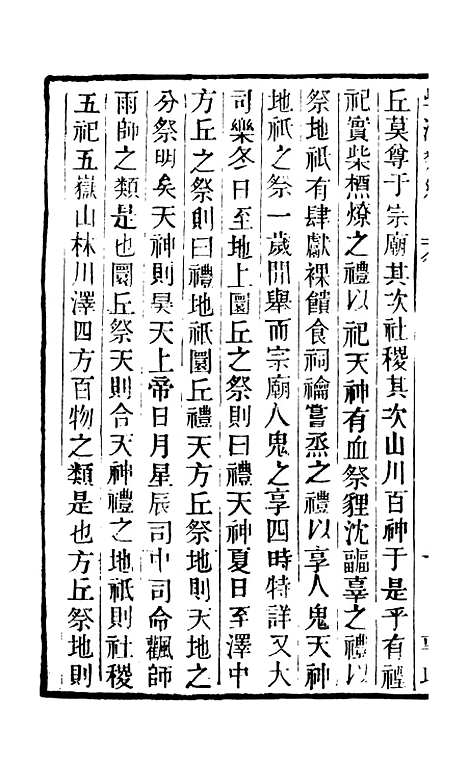 丘莫尊于宗廟其次社稷其次山川百神于是乎有禋
祀實柴槱燎之禮以祀天神有血祭貍沈疈辜之禮以
祭地祇有肆獻祼饋食祠禴嘗烝之禮以享人鬼天神
地祇之祭一歲閒舉而宗廟人鬼之享四時特詳又大
司樂冬日至地上圜丘之祭則曰禮天神夏日至澤中
方丘之祭則曰禮地祇圜丘禮天方丘祭地則天地之
分祭明矣天神則昊天上帝日月星辰司中司命飌師
雨師之類是也圜丘祭天則合天神禮之地祇則社稷
五祀五嶽山林川澤四方百物之類是也方丘祭地則